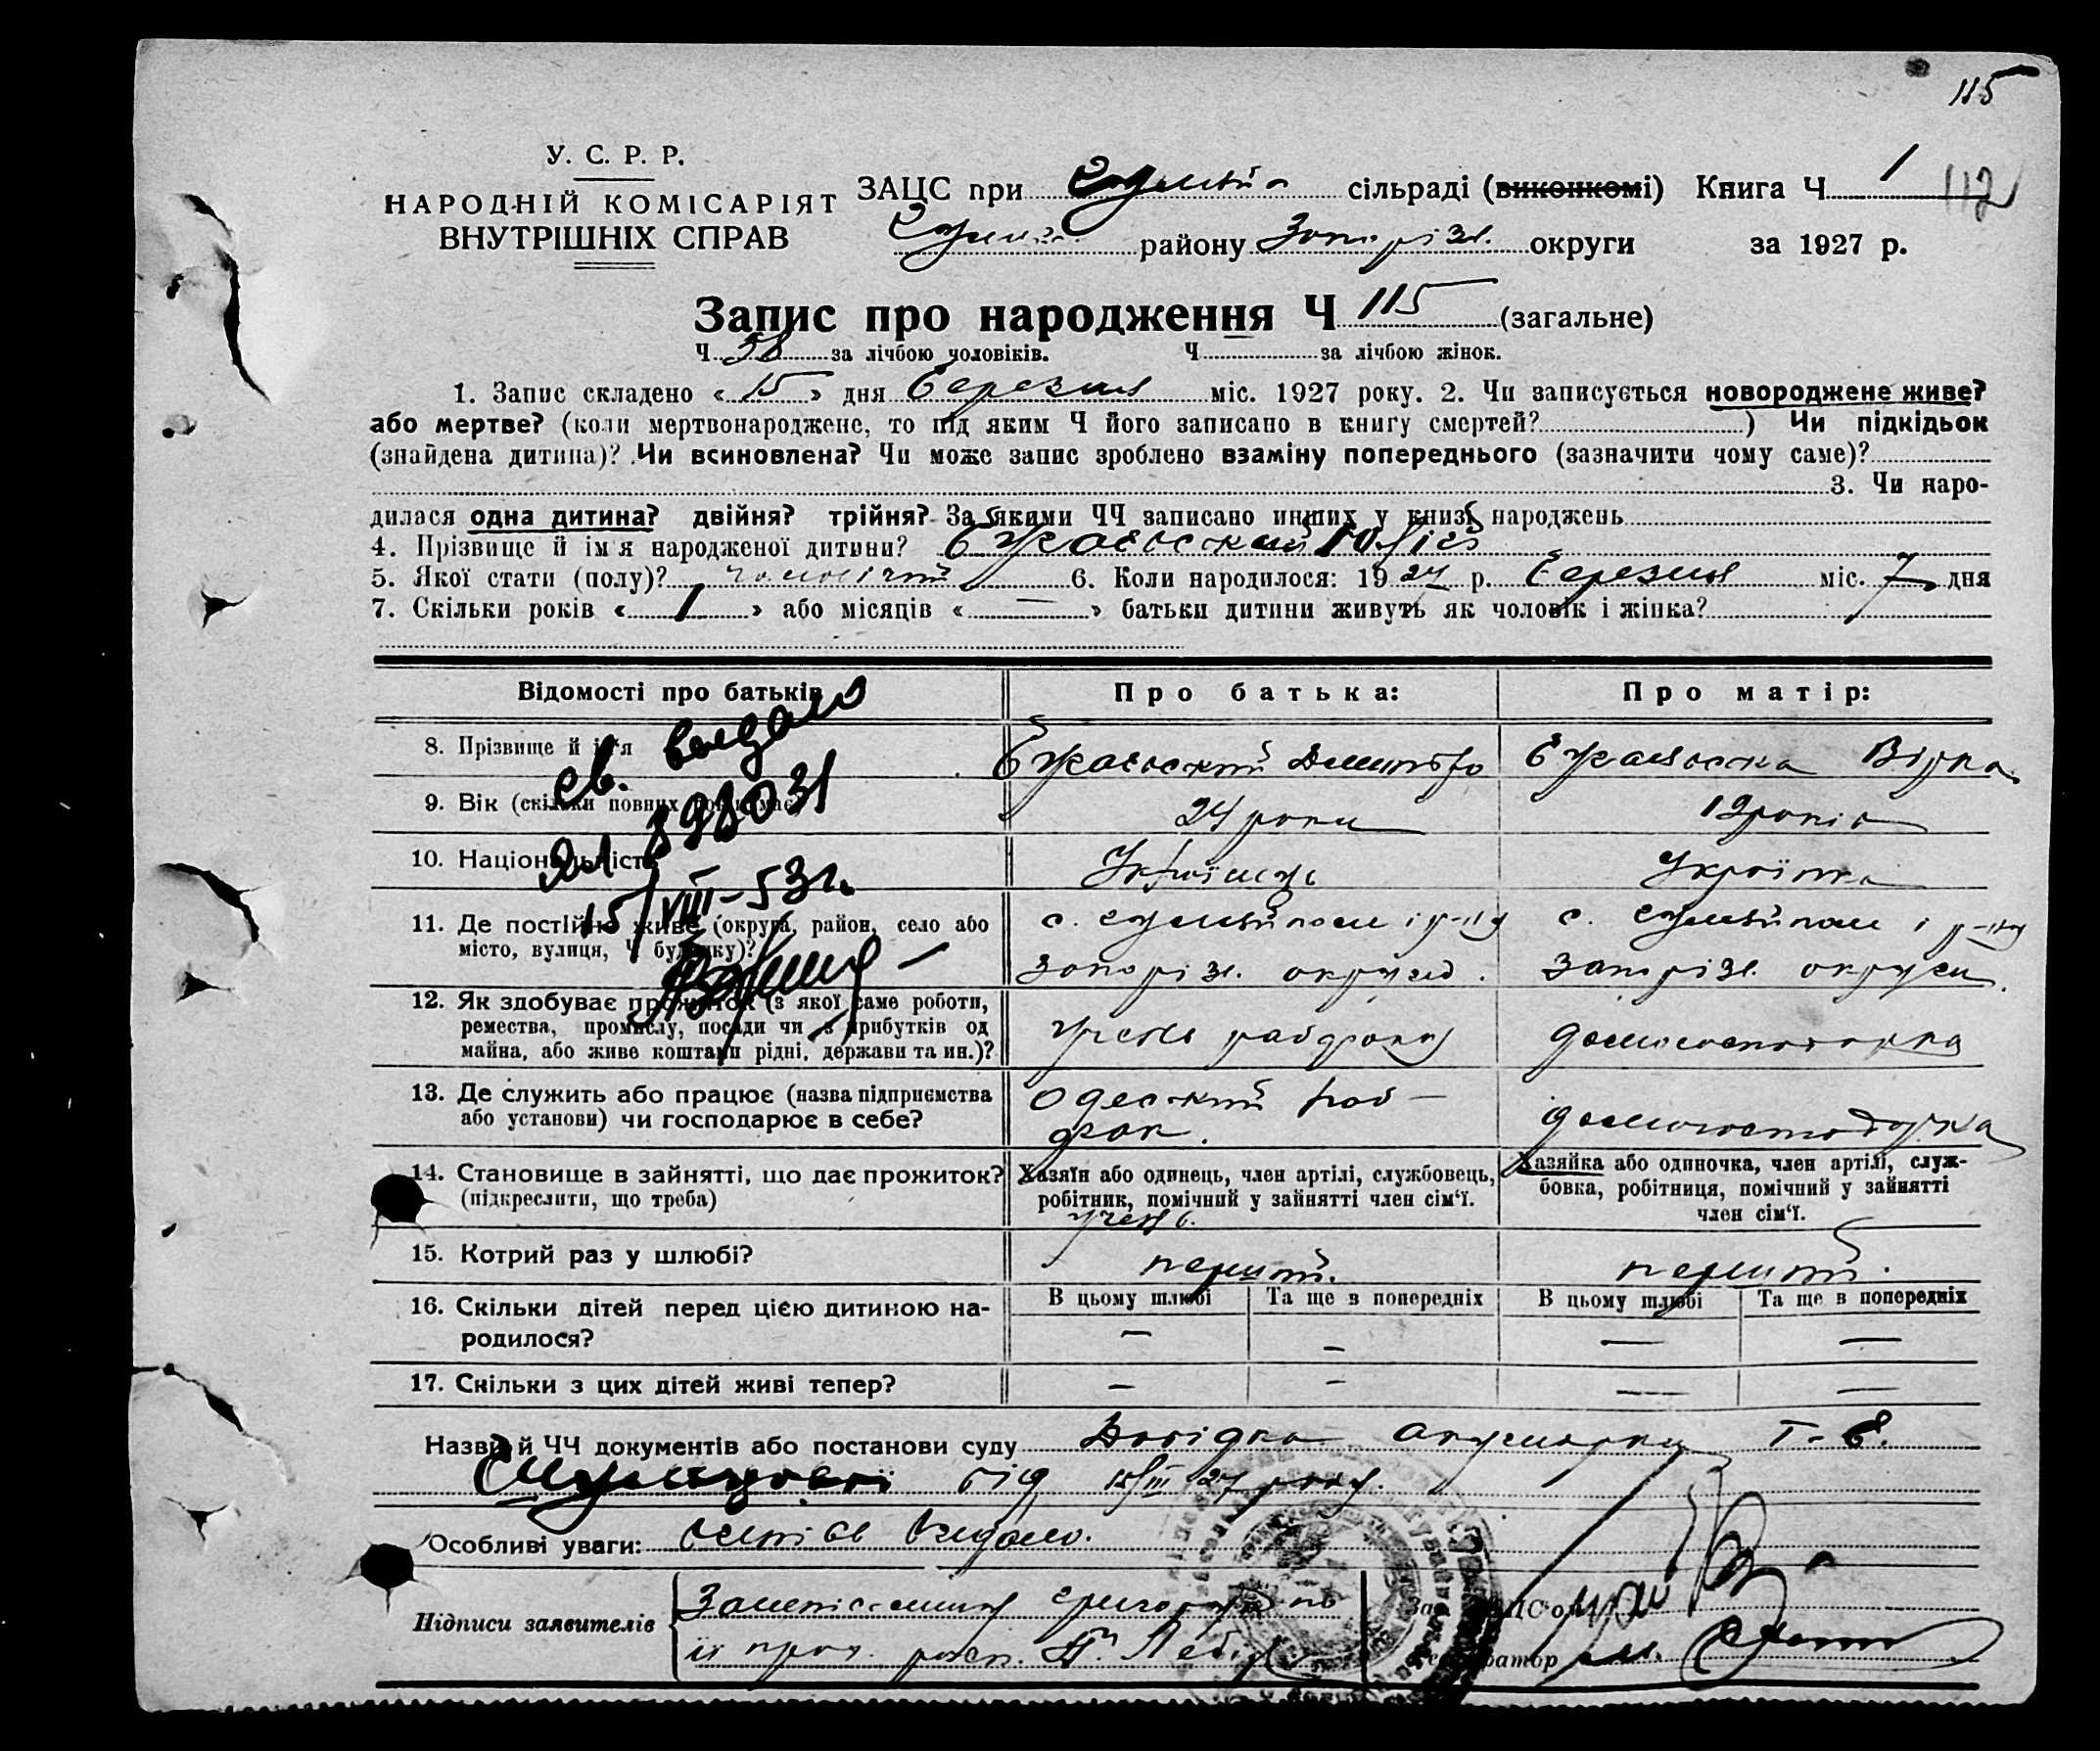 115
У. С. Р. Р.
НАРОДНІЙ КОМІСАРІЯТ
ВНУТРІШНІХ СПРАВ
ЗАЦС при сільраді (виконкомі) Книга Ч 1 112
району Запорізк. округи за 1927 р.
Запис про народження Ч 115 (загальне)
Ч 58 за лічбою чоловіків. Ч за лічбою жінок.
1. Запис складено « 15 » дня березня міс. 1927 року. 2. Чи записується новороджене живе?
або мертве? (коли мертвонароджене, то під яким Ч його записано в книгу смертей? ) Чи підкідьок
(знайдена дитина)? Чи всиновлена? Чи може запис зроблено взаміну попереднього (зазначити чому саме)?
3. Чи наро-
дилася одна дитина? двійня? трійня? За якими ЧЧ записано инших у книзі народжень
4. Прізвище й ім'я народженої дитини?
5. Якої стати (полу)? чоловічої 6. Коли народилося: 1927 р. березня міс. 7 дня
7. Скільки років « 1 » або місяців « — » батьки дитини живуть як чоловік і жінка?
Відомості про батьків Про батька: Про матір:
св. выдано
898031
15/VIII-53г.
8. Прізвище й ім'я Дмитро Віра
9. Вік (скільки повних років має) 24 роки 19 років
10. Національність Українець Українка
11. Де постійно живе (округа, район, село або
місто, вулиця, Ч будинку)?
с. і р-ну с. і р-ну
Запорізк. округи. Запорізк. округи.
12. Як здобуває прожиток (з якої саме роботи,
ремества, промислу, посади чи з прибутків од
майна, або живе коштами рідні, держави та ин.)?
учень рабфаку домогосподарка
13. Де служить або працює (назва підприємства
або установи) чи господарює в себе?
Одеський раб-
фак. домогосподарка
14. Становище в зайнятті, що дає прожиток?
(підкреслити, що треба)
Хазяїн або одинець, член артілі, службовець,
робітник, помічний у зайнятті член сім'ї.
учень.
Хазяйка або одиночка, член артілі, служ-
бовка, робітниця, помічний у зайнятті
член сім'ї.
15. Котрий раз у шлюбі? перший. перший.
16. Скільки дітей перед цією дитиною на-
родилося?
В цьому шлюбі Та ще в попередніх В цьому шлюбі Та ще в попередніх
— — — —
17. Скільки з цих дітей живі тепер? — — — —
Назви й ЧЧ документів або постанови суду Довідка акушерки
від 15/III 27 року.
Особливі уваги: видано.
Підписи заявителів
Регістратор